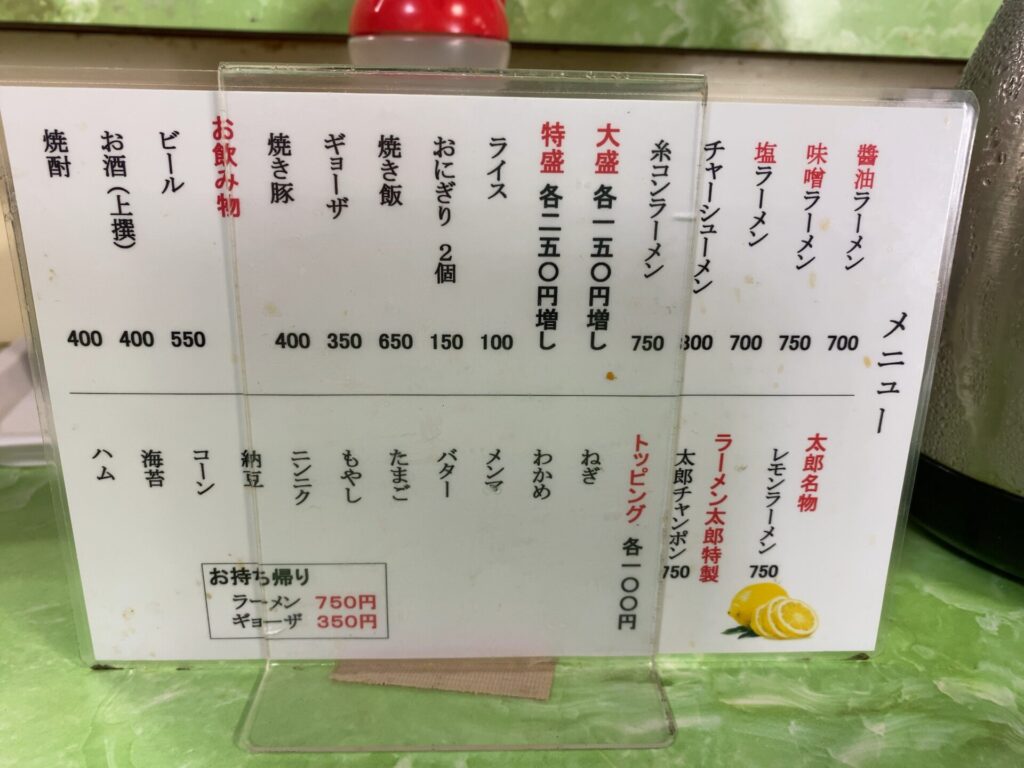 メニュー
醬油ラーメン 700
味噌ラーメン 750
塩ラーメン 700
チャーシューメン 800
糸コンラーメン 750
大盛 各一五〇円増し
特盛 各二五〇円増し
ライス 100
おにぎり 2個 150
焼き飯 650
ギョーザ 350
焼き豚 400
お飲み物
ビール 550
お酒(上撰) 400
焼酎 400
太郎名物
レモンラーメン 750
ラーメン太郎特製
太郎チャンポン 750
トッピング 各一〇〇円
ねぎ
わかめ
メンマ
バター
たまご
もやし
ニンニク
納豆
コーン
海苔
ハム
お持ち帰り
ラーメン 750円
ギョーザ 350円